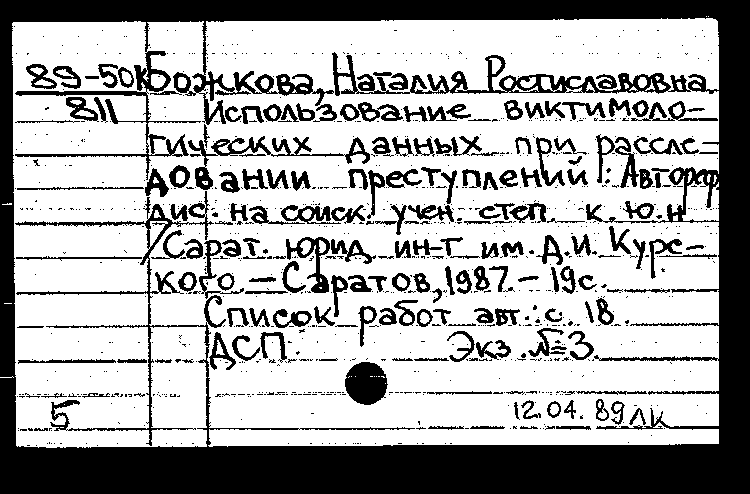 89-50к Божкова, Наталия Ростиславовна
811 Использование виктимоло-
гических данных при рассле-
довании преступлений : Автореф
дис. на соиск. учен. степ. к. ю. н
/Сарат. юрид. ин-т им. Д. И. Курс-
кого. - Саратов, 1987. - 19 с.
Список работ авт.: с. 18.
ДСП. Экз. №3.
5 12.04.89 лк